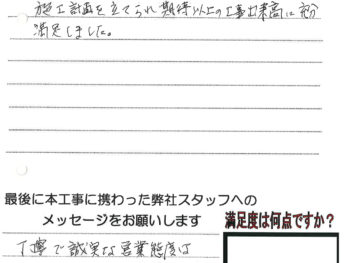 施工計画を立てられ期待以上の工事出来高に充分
満足しました。
最後に本工事に携わった弊社スタッフへの
メッセージをお願いします
満足度は何点ですか?
丁寧で誠実な営業態度は